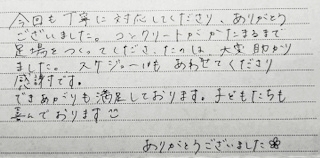 今回も丁寧に対応してくださり、ありがとう
ございました。コンクリートがかたまるまで
足場をつくってくださったのは、大変助かり
ました。スケジュールもあわせてくださり
感謝です。
できあがりも満足しております。子どもたちも
喜んでおります
ありがとうございました